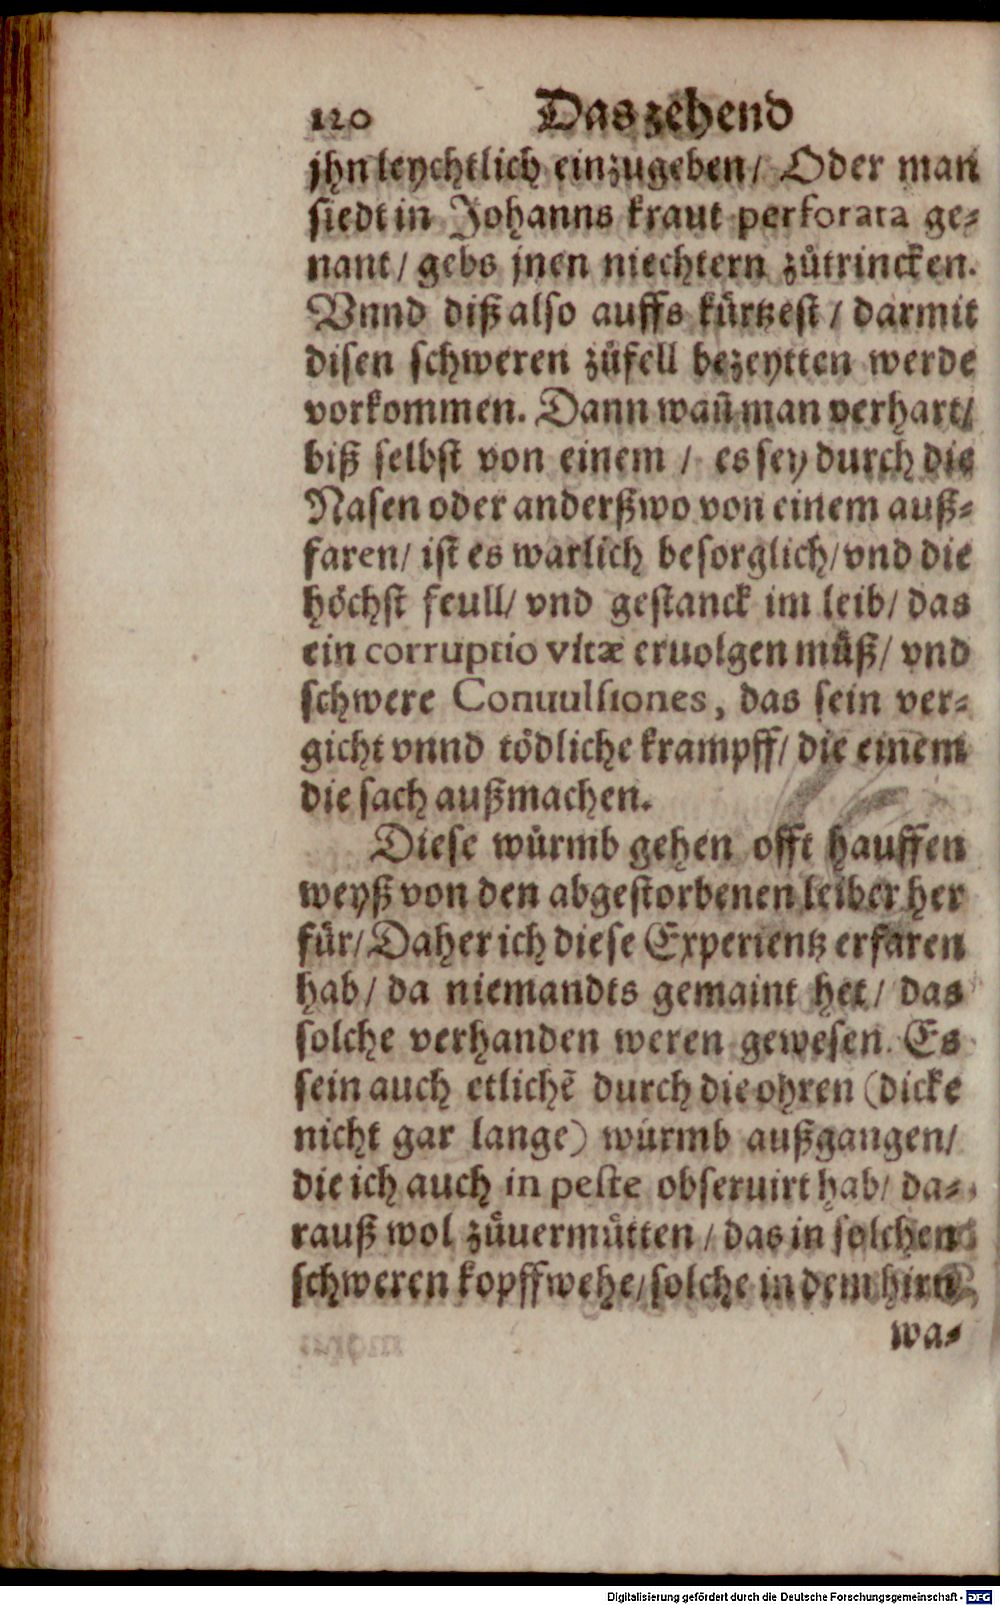 120 Das zehend
jhn leychtlich einzugeben/ Oder man
siedt in Johanns kraut perforata ge⸗
nant/ gebs jnen niechtern zůtrincken.
Vnnd diß also auffs kürtzest/ darmit
disen schweren zůfell bezeytten werde
vorkommen. Dann wañ man verhart/
biß selbst von einem/ es sey durch die
Nasen oder anderßwo von einem auß⸗
faren/ ist es warlich besorglich/ vnd die
höchst feull/ vnd gestanck im leib/ das
ein corruptio vitæ eruolgen můß/ vnd
schwere Conuulsiones, das sein ver⸗
gicht vnnd tödliche krampff/ die einem
die sach außmachen.
Diese würmb gehen offt hauffen
weyß von den abgestorbenen leiber her
für/ Daher ich diese Experientz erfaren
hab/ da niemandts gemaint het/ das
solche verhanden weren gewesen. Es
sein auch etlichẽ durch die ohren (dicke
nicht gar lange) würmb außgangen/
die ich auch in peste obseruirt hab/ da⸗
rauß wol zůuermůtten/ das in solchen
schweren kopffwehe/ solche in dem hirn
wa⸗
Digitalisierung gefördert durch die Deutsche Forschungsgemeinschaft - DFG